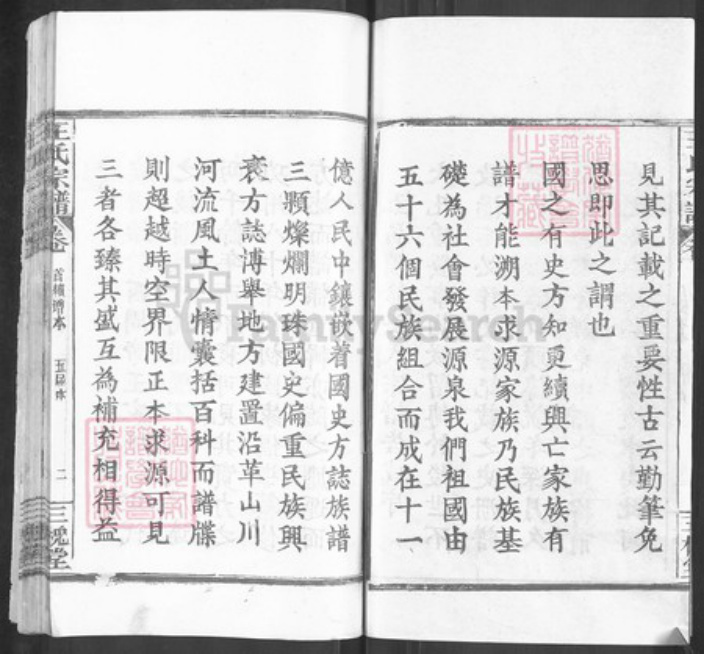 見其記載之重要性古云勤筆免
思即此之謂也
國之有史方知更續興亡家族有
譜才能溯本求源家族乃民族基
礎為社會發展源泉我們祖國由
五十六個民族組合而成在十一
億人民中鑲嵌着國史方誌族譜
三顆燦爛明珠國史偏重民族興
衰方誌博舉地方建置沿革山川
河流風土人情囊括百科而譜牒
則超越時空界限正本求源可見
三者各臻其盛互為補充相得益
王氏宗譜
卷
首頓譜本
五屆本
二
三槐堂
FamilySearch